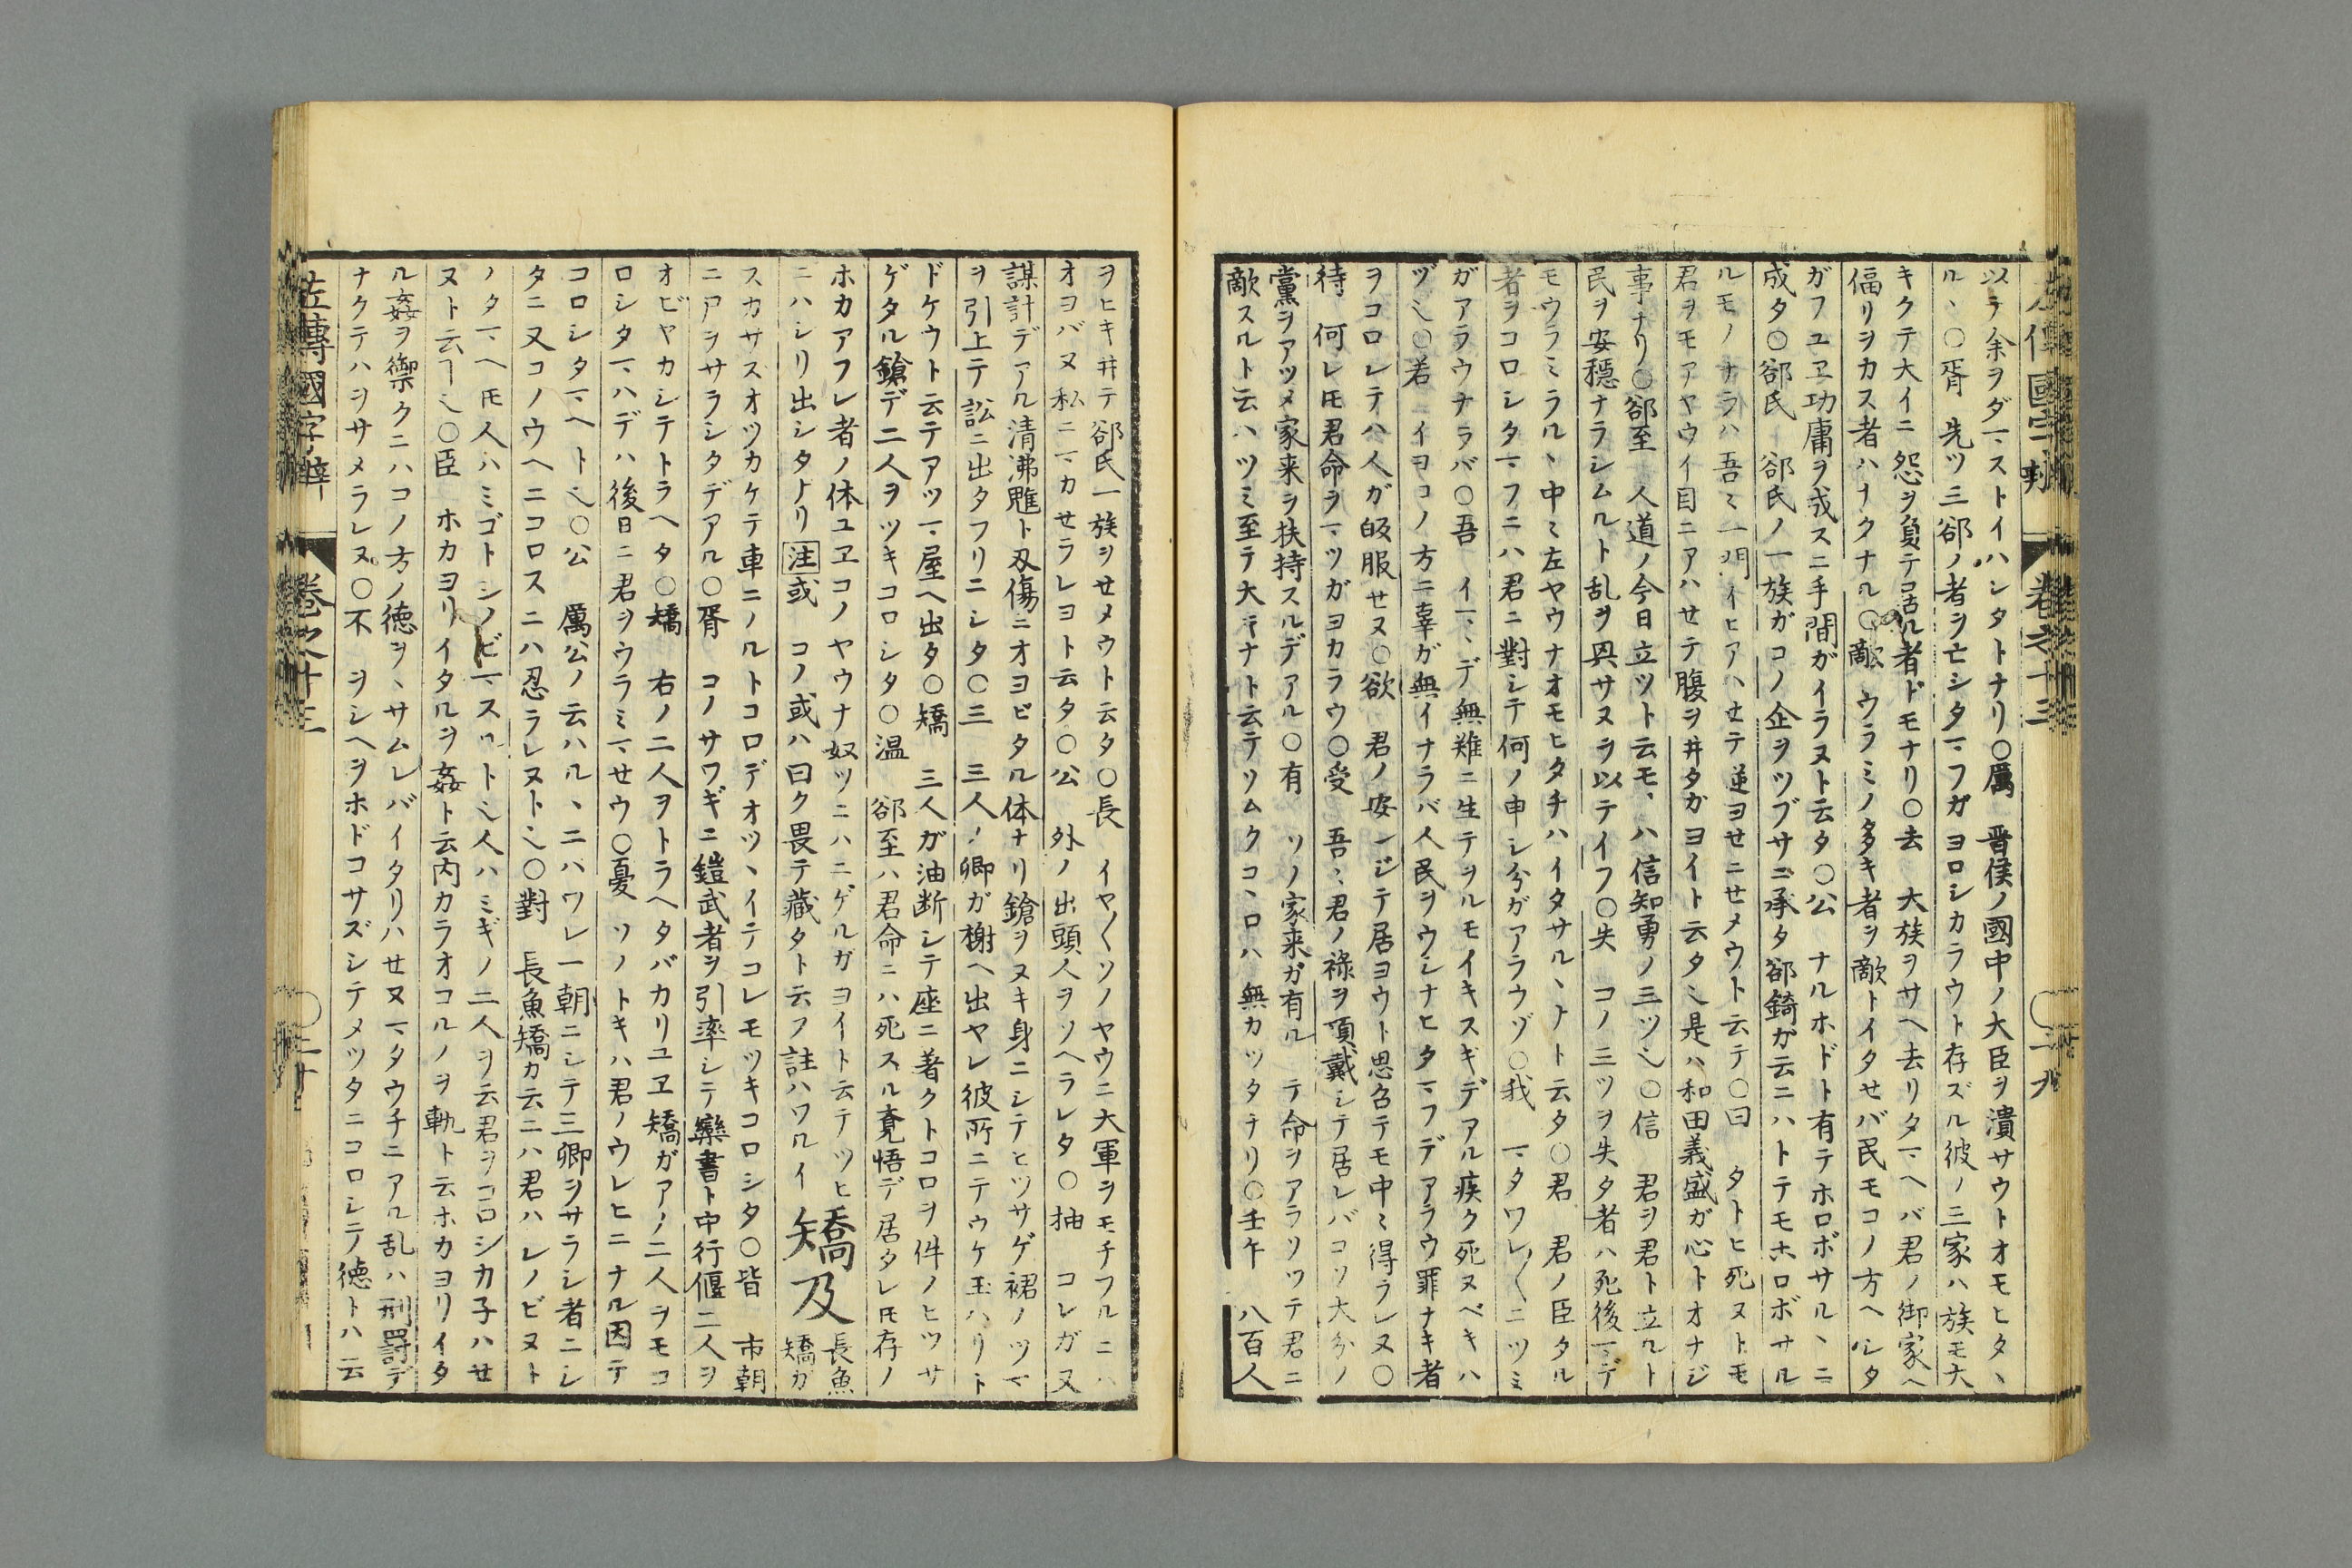 以テ余ヲダマストイハシタトナリ〇厲　晋侯ノ國中ノ大臣ヲ潰サウトオモヒタヽ
ルヽ〇胥　先ツ三郤ノ者ヲ亡シタマフガヨロシカラウト存ズル彼ノ三家ハ族モ大
キクテ大イニ怨ヲ負テ者ドモナリ〇去　大族ヲサヘ去リタマヘバ君ノ御家ヘ
偪リヲカス者ハナクナル〇敵　ウラミノ多キ者ヲ敵トイタセバ民モコノ方ヘシタ
ガフユヱ功庸ヲ成スニ手間ガイラヌト云タ〇公　ナルホドト有テホロボサルヽニ
成タ〇郤氏　郤氏ノ一族ガコノ企ヲツブサニ承タ郤錡ガ云ニハトテモホロボサル
ルモノナラハ吾ミ一門イヒアハせテ逆ヨせニせメウト云テ〇曰　タトヒ死ヌトモ
君ヲモアヤウイ目ニアハせテ腹ヲ井タガヨイト云タ〻是ハ和田義盛ガ心トオナジ
事ナリ〇郤至　人道ノ今日立ツト云モヽハ信知勇ノ三ツ〻〇信　君ヲ君ト立ルト
民ヲ安穏ナラシムルト乱ヲ興サヌヲ以テイフ〇失　コノ三ツヲ失タ者ハ死後マデ
モウラミラルヽ中ミ左ヤウナオモヒタチハイタサルヽナト云タ〇君　君ノ臣タル
者ヲコロシタマフニハ君ニ對シテ何ノ申シ分ガアラウゾ〇我　マタワレ〱ニツミ
ガアラウナラバ〇吾　イマヽデ無難ニ生テヲルモイキスギデアル疾ク死ヌベキハ
ヅ〻〇若　イヨコノ方ニ辜ガ無イナラバ人民ヲウシナヒタマフデアラウ罪ナキ者
ヲコロレテハ人ガ皈服せヌ〇欲　君ノ安ンジテ居ヨウト思召テモ中ミ得ラレヌ〇
待　何レ圧君命ヲマツガヨカラウ〇受　吾ミ君ノ祿ヲ頂戴シテ居レバコソ大分ノ
黨ヲアツメ家来ヲ扶持スルデアル〇有　ソノ家来ガ有ル　テ命ヲアラソツテ君ニ
敵スルト云ハツミ至テ大ナナト云テソムクコヽロハ無カツタナリ〇壬午　八百人
ヲヒキ井テ郤氏一族ヲせメウト云タ〇長　イヤ〱ソノヤウニ大軍ヲモチフルニハ
オヨバヌ私ニマカせラレヨト云タ〇公　外ノ出頭人ヲソヘラレタ〇抽　コレガ又
謀計デアル清沸魋ト刄傷ニオヨビタル体ナリ鎗ヲヌキ身ニシテヒツサゲ裙ノツマ
ヲ引上テ訟ニ出タフリニシタ〇三　三人ノ卿ガ榭ヘ出ヤレ彼所ニテウケ玉ハリト
ドケウト云テアツマ屋ヘ出タ〇矯　三人ガ油断シテ座ニ著クトコロヲ件ノヒツサ
ゲタル鎗デ二人ヲツキコロシタ〇温　郤至ハ君命ニハ死スル覚悟デ居タレ圧存ノ
ホカアフレ者ノ体ユヱコノヤウナ奴ツニハニゲルガヨイト云テツヒ
ニハシリ出シタナリ注或　コノ或ハ曰ク畏テ藏タト云フ註ハワルイ矯及長魚
矯ガ
スカサスオツカケテ車ニノルトコロデオツヽイテコレモツキコロシタ〇皆　市朝
ニ尸ヲサラシタデアル〇胥　コノサワギニ鎧武者ヲ引率シテ欒書ト中行偃二人ヲ
オビヤカシテトラヘタ〇矯　右ノ二人ヲトラヘタバカリユヱ矯ガアノ二人ヲモコ
ロシタマハデハ後日ニ君ヲウラミマせウ〇憂　ソノトキハ君ノウレヒニナル因テ
コロシタマヘト〻〇公　厲公ノ云ハルヽニハワレ一朝ニシテ三卿ヲサラシ者ニシ
タニ又コノウヘニコロスニハ忍ラレヌト〻〇對　長魚矯カ云ニハ君ハレノビヌト
ノタマヘ圧人ハミゴトシノビマスルト〻人ハミギノ二人ヲ云君ヲコロシカ子ハせ
ヌト云ヿ〻〇臣　ホカヨリイタルヲ姦ト云内カラオコルノヲ軌ト云ホカヨリイタ
ル姦ヲ禦クニハコノ方ノ徳ヲヽサムレバイタリハせヌマタウチニアル乱ハ刑罸デ
ナクテハヲサメラレヌ〇不　ヲシヘヲホドコサズシテメツタニコロシテ徳トハ云
左傳國字辯　卷之十三